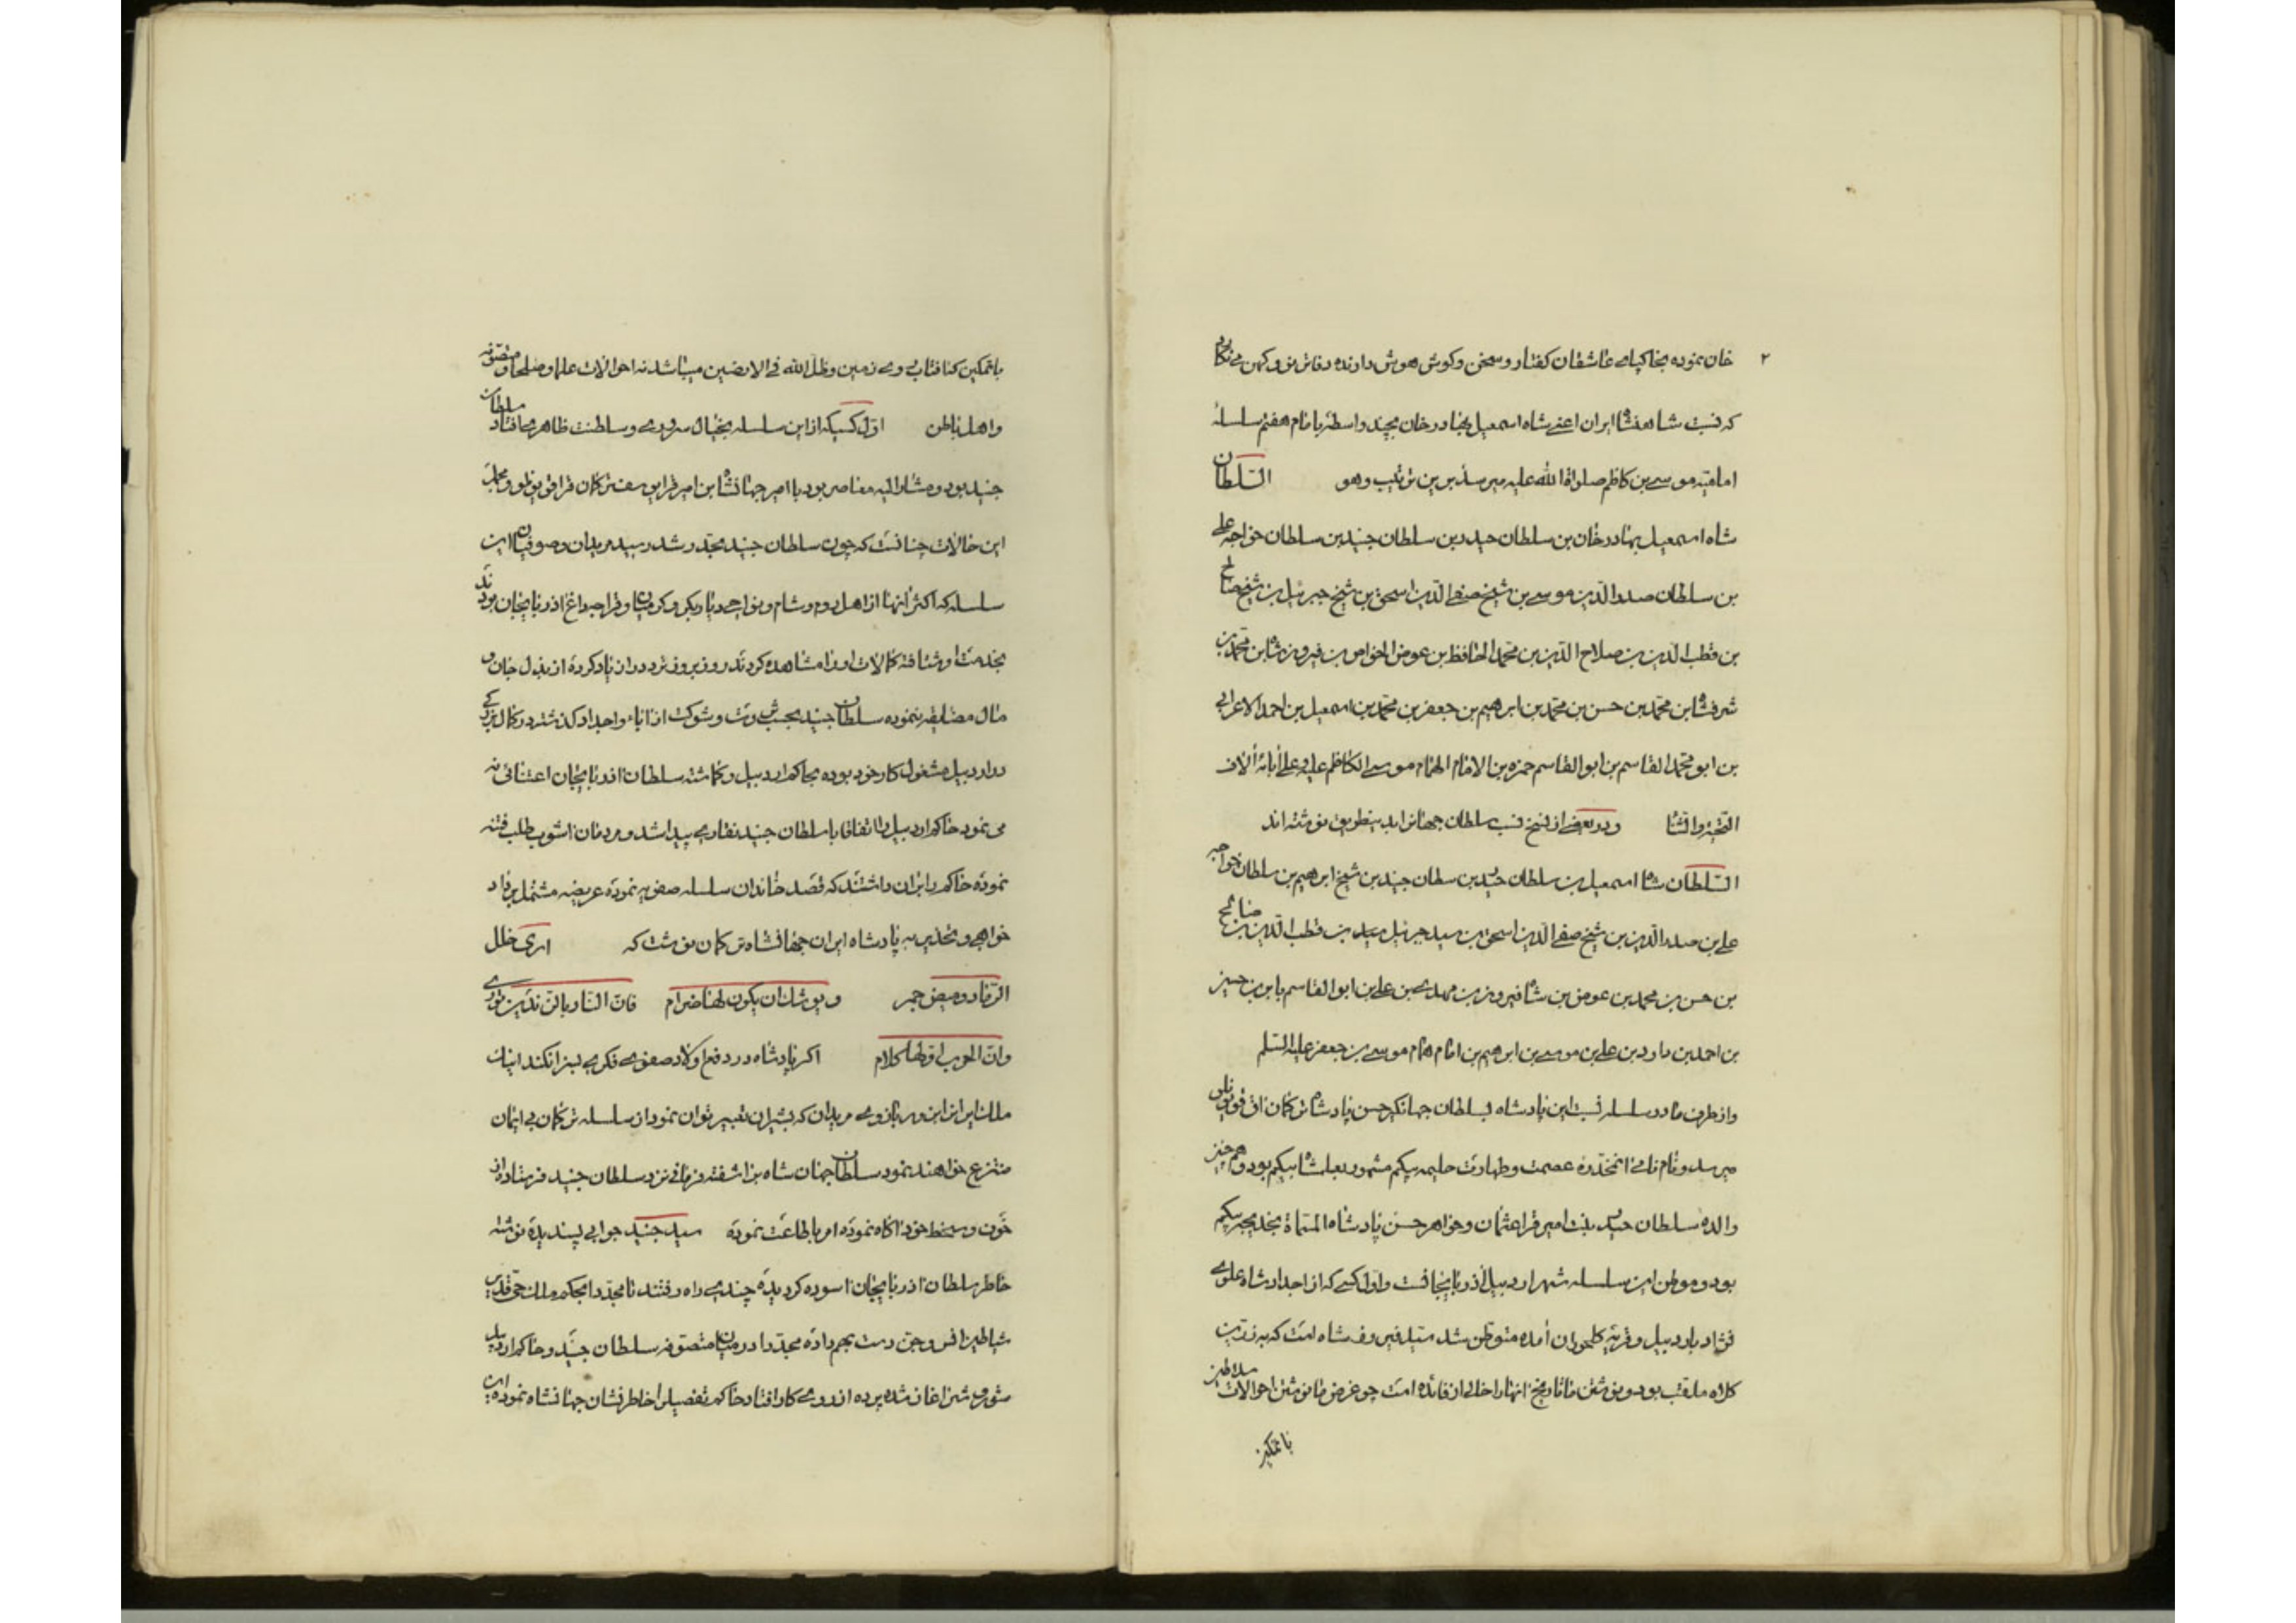 ۲
خان نموده بخاکپای عاشقان کفتار و سخن و کوش هوش دارنده دفاتر نو و کهن می نکارد
که نسبت شاهنشاه ایران اعنی شاه اسمعیل بهادر خان بچند واسطه بامام هفتم سلسله
امامیه موسی بن کاظم صلواة الله علیه میرسد برین ترتیب وهو السلطان
شاه اسمعیل بهادر خان بن سلطان حیدر بن سلطان جنید بن سلطان خواجه علی
بن سلطان صدر الدین موسی بن شیخ صفی الدین اسحق بن شیخ جبرئیل بن شیخ صالح
بن قطب الدین بن صلاح الدین بن محمد الحافظ بن عوض الخواص بن فیروز شاه بن محمد بن
شرفشاه بن محمد بن حسن بن محمد بن ابرهیم بن جعفر بن محمد بن اسمعیل بن احمد الاعرابی
بن ابو محمد القاسم بن ابو القاسم حمزه بن الامام الهمام موسی الکاظم علیه وعلی آبائه ألاف
التحیة والثنا ودر بعضی از نسخ نسب سلطان جهانرا بدینطریق نوشته اند
السلطان شاه اسمعیل بن سلطان حیدر بن سطان جنید بن شیخ ابرهیم بن سلطان خواجه
علی بن صدر الدین بن شیخ صفی الدین اسحق بن سید جبرئیل بن قطب الدین بن صالح
بن حسن بن محمد بن عوض بن شاه فیروز بن مهدی بن علی بن ابو القاسم بابر بن حسین
بن احمد بن داود بن علی بن موسی بن ابرهیم بن امام همام موسی بن جعفر علیه السلم
واز طرف مادر سلسله نسب این پادشاه بسلطان جهانکیر حسن پادشاه ترکمان اق قوینلو
میرسد و نام نامی انمخدره عصمت وطهارت حلیمه بیکم مشهور بعلمشاه بیکم بود وهم چنین
والده سلطان حیدر بنت امیر قرا عثمان وخواهر حسن پادشاه المسماة بخدیجه بیکم
بود وموطن این سلسله شهر اردبیل أذربایجانست واول کسی که از اجداد شاه علوی
نژاد باردبیل وقریه کلخوران أمده متوطن شد سید فیروز شاه است که به زرین
کلاه ملقب بود ونوشتن تاریخ انها را خالی از فائده است چو غرض ما نوشتن احوالات سلاطین
باتمکین
باتمکین که افتاب روی زمین وظل الله فی الارضین میباشد نه احوالات علما وصلحا ومتصوفه
واهل باطن اول کسیکه از این سلسله بخیال سروری وسلطنت ظاهری افتاد سلطان
جنید بود ومشار الیه معاصر بود با امیر جهانشاه بن امیر قرا یوسف ترکمان قرا قوینلو ومجمل
این حالات چنانست که چون سلطان جنید بحد رشد رسید مریدان وصوفیان این
سلسله که اکثر أنها از اهل روم وشام ونواحی دیاربکر وکرمیان وقراجه داغ اذربایجان بودند
بخدمت او شتافته کمالات او را مشاهده کردند روز بروز تردد را زیاد کرده از بذل جان و
مال مضایقه ننموده سلطان جنید بحسب ثروت وشوکت از اباء واجداد کذشته در کمال بزرکی
در اردبیل مشغول کار خود بوده بحاکم اردبیل وکماشته سلطان اذربایجان اعتنائی نه
می نمود حاکم اردبیل را اتفاقا با سلطان جنید نقاری پیدا شد ومردمان اشوب طلب فتنه
نموده حاکم را بران داشتند که قصد خاندان سلسله صفویه نموده عریضه مشتمل بر داد
خواهی وتحذیر به پادشاه ایران جهانشاه ترکمان نوشت که اری خلل
الرماد ومیض جمر ویوشک ان یکون لهٰا ضرام فان النار بالزندین توری
وان الحرب اولها کلام اکر پادشاه در دفع اولاد صفوی فکری بسزا نکند
ملک ایران این وبازوی مریدان که بشیران تعبیر توان نمود از سلسله ترکمان بی ایمان
منتزع خواهند نمود سلطان جهان شاه بر اشفته فرمانی نزد سلطان جنید فرستاد واز
خون وسخط خود اکاه نموده امر باطاعت نموده سید جنید جوابی پسندیده نوشته
خاطر سلطان اذربایجان اسوده کردیده چندی راه رفتند تا مجددا بحکم ملک حی قدیر
شیاطین انس وجن دست بهم داده مجددا در میان متصوفه سلطان جنید وحاکم اردبیل
شور وشر اغاز شده پرده از روی کار افتاد حاکم تفصیل را خاطر نشان جهانشاه نموده این